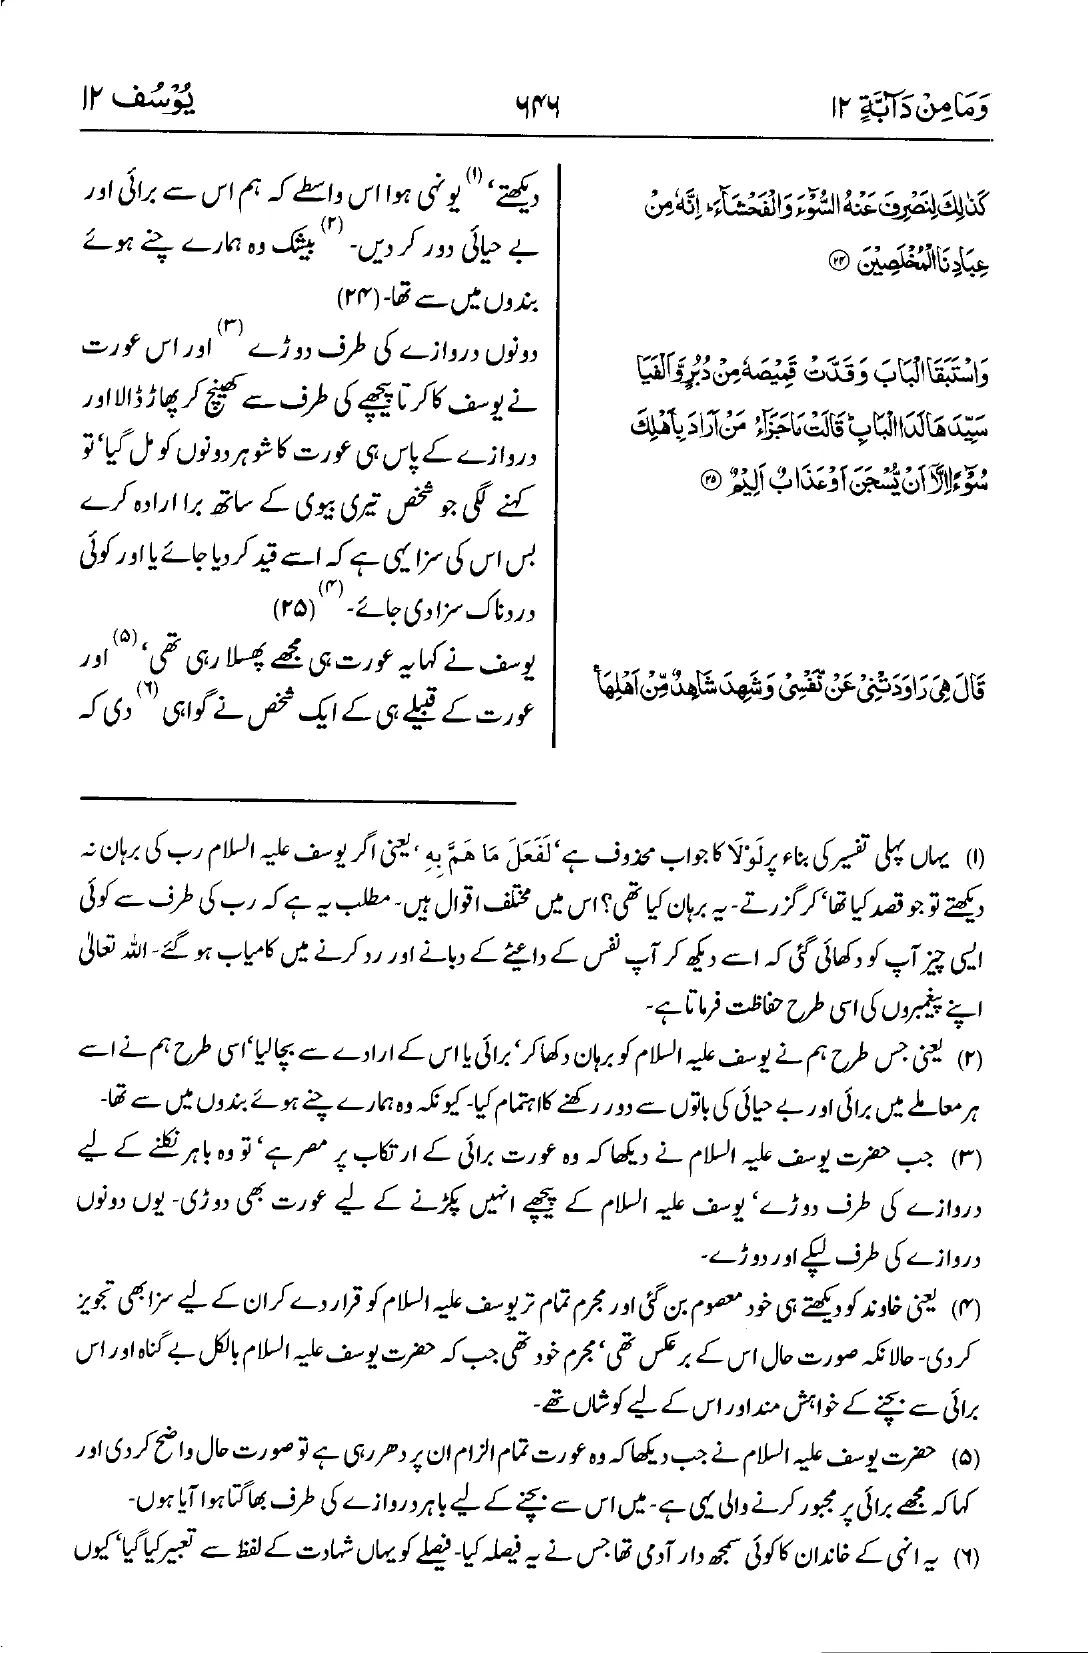 وَمَا مِنْ دَآبَّةٍ ۱۲
۶۴۶
يُوْسُف ۱۲
كَذٰلِكَ لِنَصْرِفَ عَنْهُ السُّوْٓءَ وَالْفَحْشَآءَ ؕ اِنَّهٗ مِنْ
عِبَادِنَا الْمُخْلَصِيْنَ ۲۴
وَاسْتَبَقَا الْبَابَ وَقَدَّتْ قَمِيْصَهٗ مِنْ دُبُرٍ وَّاَلْفَيَا
سَيِّدَهَا لَدَا الْبَابِ ؕ قَالَتْ مَا جَزَآءُ مَنْ اَرَادَ بِاَهْلِكَ
سُوْٓءًا اِلَّآ اَنْ يُّسْجَنَ اَوْ عَذَابٌ اَلِيْمٌ ۲۵
قَالَ هِيَ رَاوَدَتْنِيْ عَنْ نَّفْسِيْ وَشَهِدَ شَاهِدٌ مِّنْ اَهْلِهَا ۚ
دیکھتے،(۱) یونہی ہوا اس واسطے کہ ہم اس سے برائی اور
بے حیائی دور کر دیں۔(۲) بیشک وہ ہمارے چنے ہوئے
بندوں میں سے تھا۔ (۲۴)
دونوں دروازے کی طرف دوڑے(۳) اور اس عورت
نے یوسف کا کرتا پیچھے کی طرف سے کھینچ کر پھاڑ ڈالا اور
دروازے کے پاس ہی عورت کا شوہر دونوں کو مل گیا، تو
کہنے لگی جو شخص تیری بیوی کے ساتھ برا ارادہ کرے
بس اس کی سزا یہی ہے کہ اسے قید کر دیا جائے یا اور کوئی
دردناک سزا دی جائے۔(۴) (۲۵)
یوسف نے کہا یہ عورت ہی مجھے پھسلا رہی تھی،(۵) اور
عورت کے قبیلے ہی کے ایک شخص نے گواہی(۶) دی کہ
(۱) یہاں پہلی تفسیر کی بناء پر لَوْلَا کا جواب محذوف ہے، لَفَعَلَ مَا هَمَّ بِهِ، یعنی اگر یوسف علیہ السلام رب کی برہان نہ
دیکھتے تو جو قصد کیا تھا، کر گزرتے۔ یہ برہان کیا تھی؟ اس میں مختلف اقوال ہیں۔ مطلب یہ ہے کہ رب کی طرف سے کوئی
ایسی چیز آپ کو دکھائی گئی کہ اسے دیکھ کر آپ نفس کے داعیئے کے دبانے اور رد کرنے میں کامیاب ہو گئے۔ اللہ تعالیٰ
اپنے پیغمبروں کی اسی طرح حفاظت فرماتا ہے۔
(۲) یعنی جس طرح ہم نے یوسف علیہ السلام کو برہان دکھا کر، برائی یا اس کے ارادے سے بچا لیا، اسی طرح ہم نے اسے
ہر معاملے میں برائی اور بے حیائی کی باتوں سے دور رکھنے کا اہتمام کیا۔ کیونکہ وہ ہمارے چنے ہوئے بندوں میں سے تھا۔
(۳) جب حضرت یوسف علیہ السلام نے دیکھا کہ وہ عورت برائی کے ارتکاب پر مصر ہے، تو وہ باہر نکلنے کے لیے
دروازے کی طرف دوڑے، یوسف علیہ السلام کے پیچھے انہیں پکڑنے کے لیے عورت بھی دوڑی۔ یوں دونوں
دروازے کی طرف لپکے اور دوڑے۔
(۴) یعنی خاوند کو دیکھتے ہی خود معصوم بن گئی اور مجرم تمام تر یوسف علیہ السلام کو قرار دے کر ان کے لیے سزا بھی تجویز
کر دی۔ حالانکہ صورت حال اس کے برعکس تھی، مجرم خود تھی جب کہ حضرت یوسف علیہ السلام بالکل بے گناہ اور اس
برائی سے بچنے کے خواہش مند اور اس کے لیے کوشاں تھے۔
(۵) حضرت یوسف علیہ السلام نے جب دیکھا کہ وہ عورت تمام الزام ان پر دھر رہی ہے تو صورت حال واضح کر دی اور
کہا کہ مجھے برائی پر مجبور کرنے والی یہی ہے۔ میں اس سے بچنے کے لیے باہر دروازے کی طرف بھاگتا ہوا آیا ہوں۔
(۶) یہ انہی کے خاندان کا کوئی سمجھ دار آدمی تھا جس نے یہ فیصلہ کیا۔ فیصلے کو یہاں شہادت کے لفظ سے تعبیر کیا گیا، کیوں